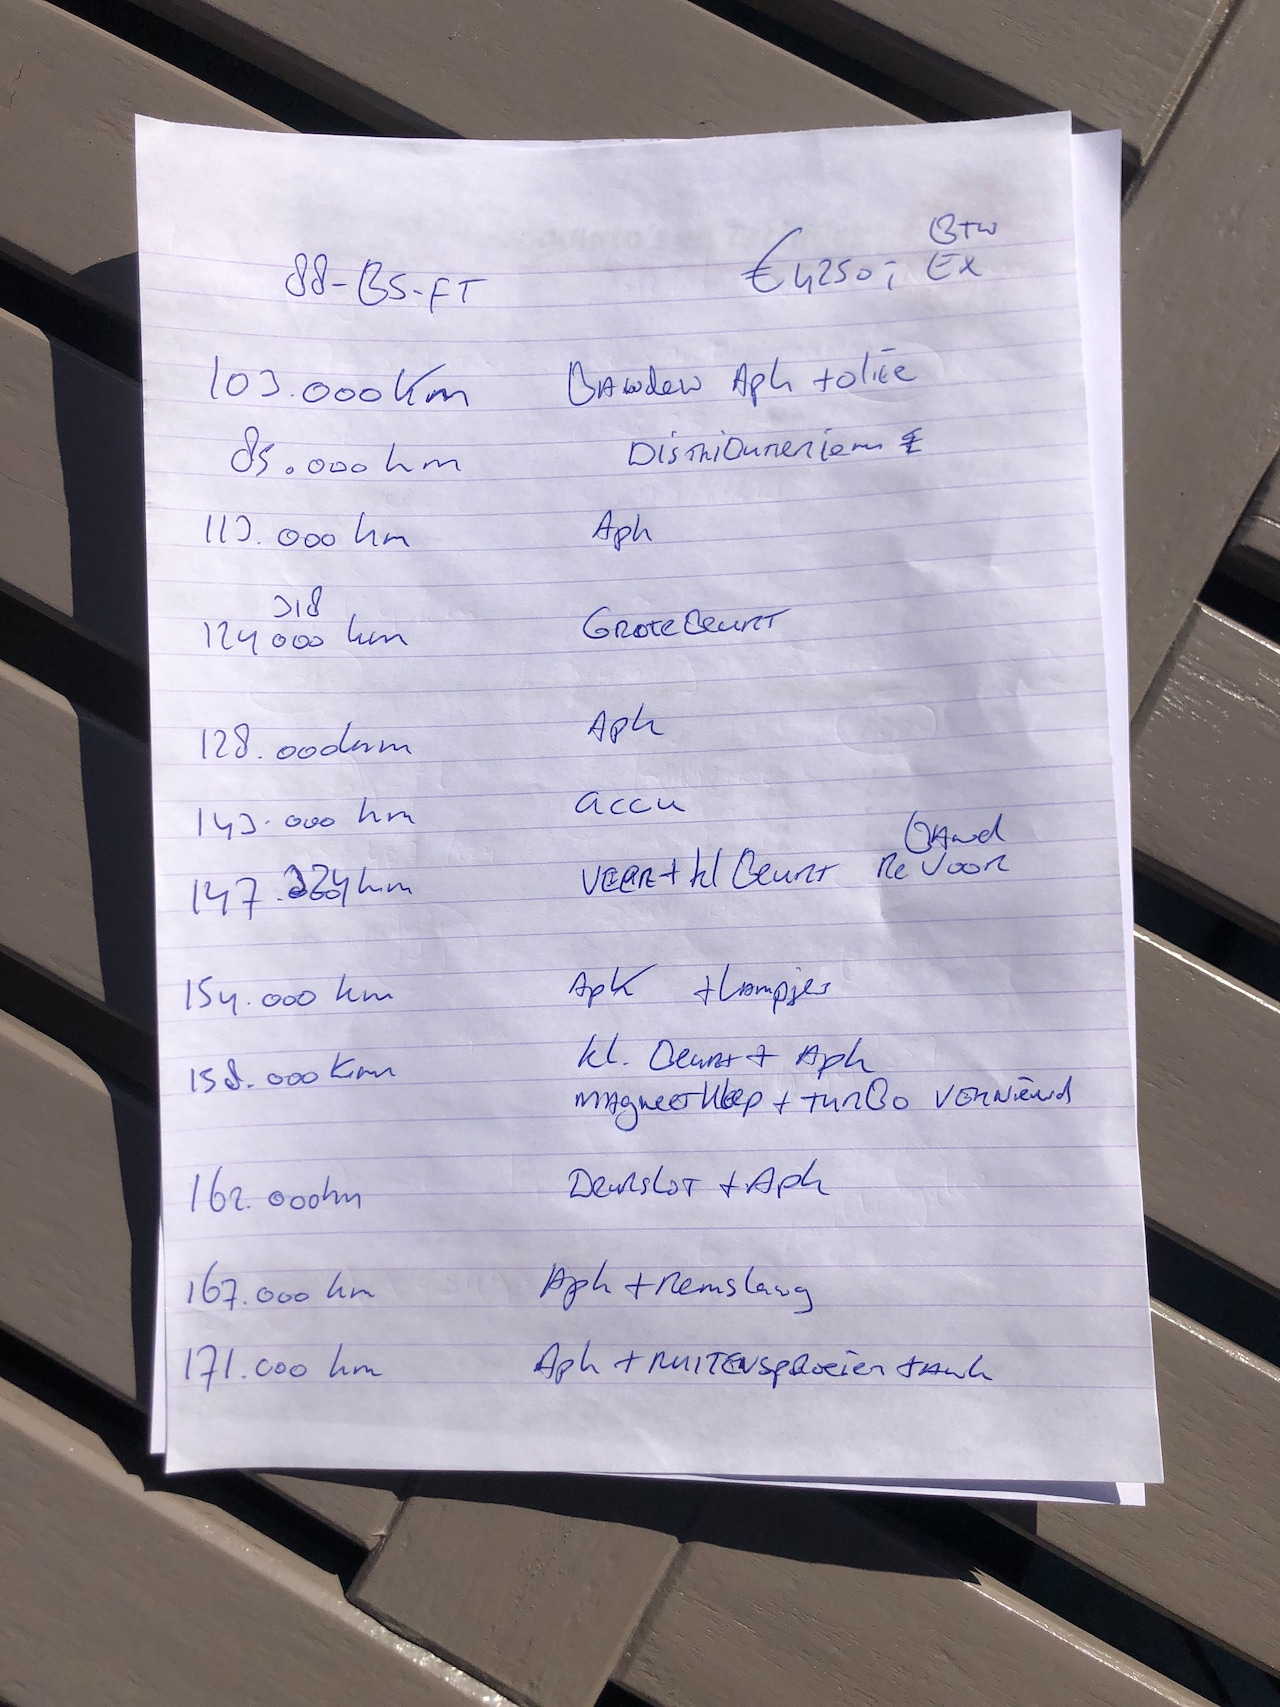 88-BS-FT
€4250,- Ex
BTW
103.000 Km Banden Apk + olie
85.000 km Distributieriem
113.000 km Apk
318
124000 km Grote Beurt
128.000 km Apk
143.000 km accu
Band
147.224 km veer + kl Beurt Re Voor
154.000 km Apk + Lampjes
158.000 Km kl. Beurt + Apk
magneetklep + turBo vernieuwd
162.000 km Deurslot + Apk
167.000 km Apk + Remslang
171.000 km Apk + Ruitensproeier tank